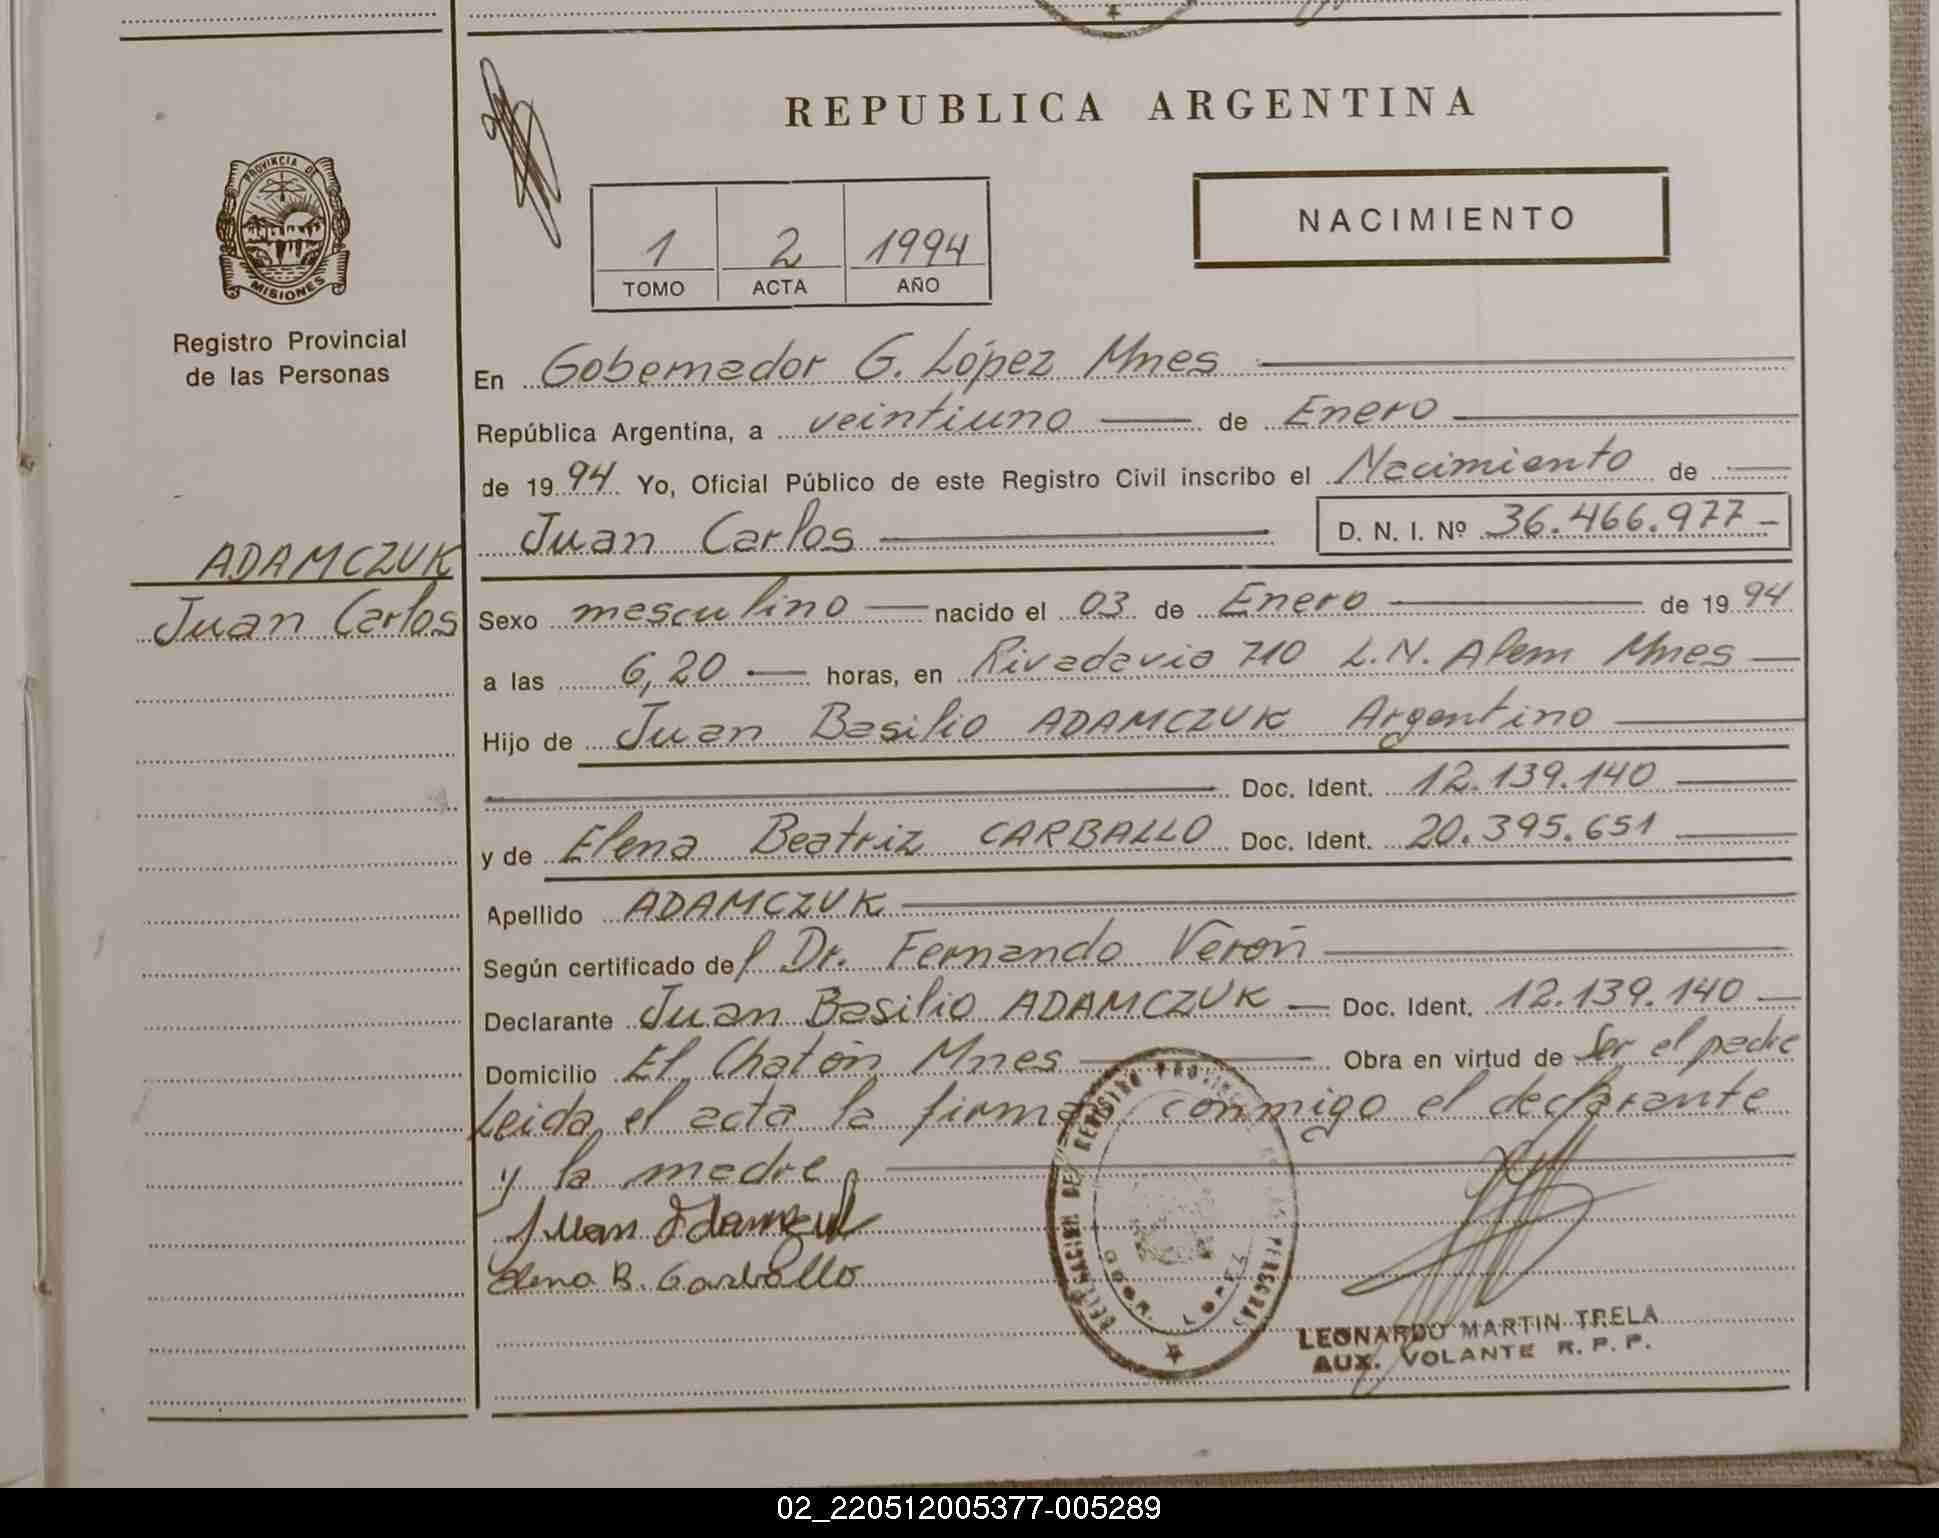 REPUBLICA ARGENTINA
PROVINCIA DE
MISIONES
Registro Provincial
de las Personas
ADAMCZUK
Juan Carlos
1 2 1994
TOMO ACTA AÑO
NACIMIENTO
En Gobernador G. López Mnes
República Argentina, a veintiuno de Enero
de 1994 Yo, Oficial Público de este Registro Civil inscribo el Nacimiento de
Juan Carlos D. N. I. Nº 36.466.977
Sexo masculino nacido el 03 de Enero de 1994
a las 6,20 horas, en Rivadavia 710 L.N. Alem Mnes
Hijo de Juan Basilio ADAMCZUK Argentino
Doc. Ident. 12.139.140
y de Elena Beatriz CARBALLO Doc. Ident. 20.395.651
Apellido ADAMCZUK
Según certificado del Dr. Fernando Verón
Declarante Juan Basilio ADAMCZUK Doc. Ident. 12.139.140
Domicilio El Chatón Mnes Obra en virtud de Ser el padre
Leida el acta la firman conmigo el declarante
y la madre
Juan Adamczuk
Elena B. Carballo
GDOR. LOPEZ
LEONARDO MARTIN TRELA
AUX. VOLANTE R. P. P.
02_220512005377-005289